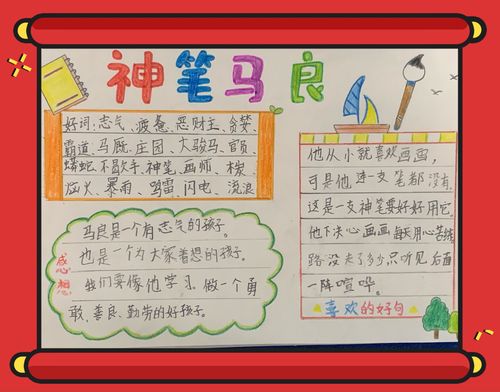 神笔马良
好词:志气、疲惫、恶财主、贪婪、
霸道、马厩、庄园、大骏马、官员、
蟒蛇、不歇手、神笔、画师、木炭、
暴雨、鸣雷、闪电、流浪
感想
马良是个有志气的孩子。
也是一个为大家着想的孩子。
我们要像他学习。做一个勇
敢、善良、勤劳的好孩子。
他从小就喜欢画画,
可是他连一支笔都没有,
这是一支神笔要好好用它。
他下决心画画每天用心苦练
路没走了多少只听见后面
一阵喧哗。
喜欢的好句